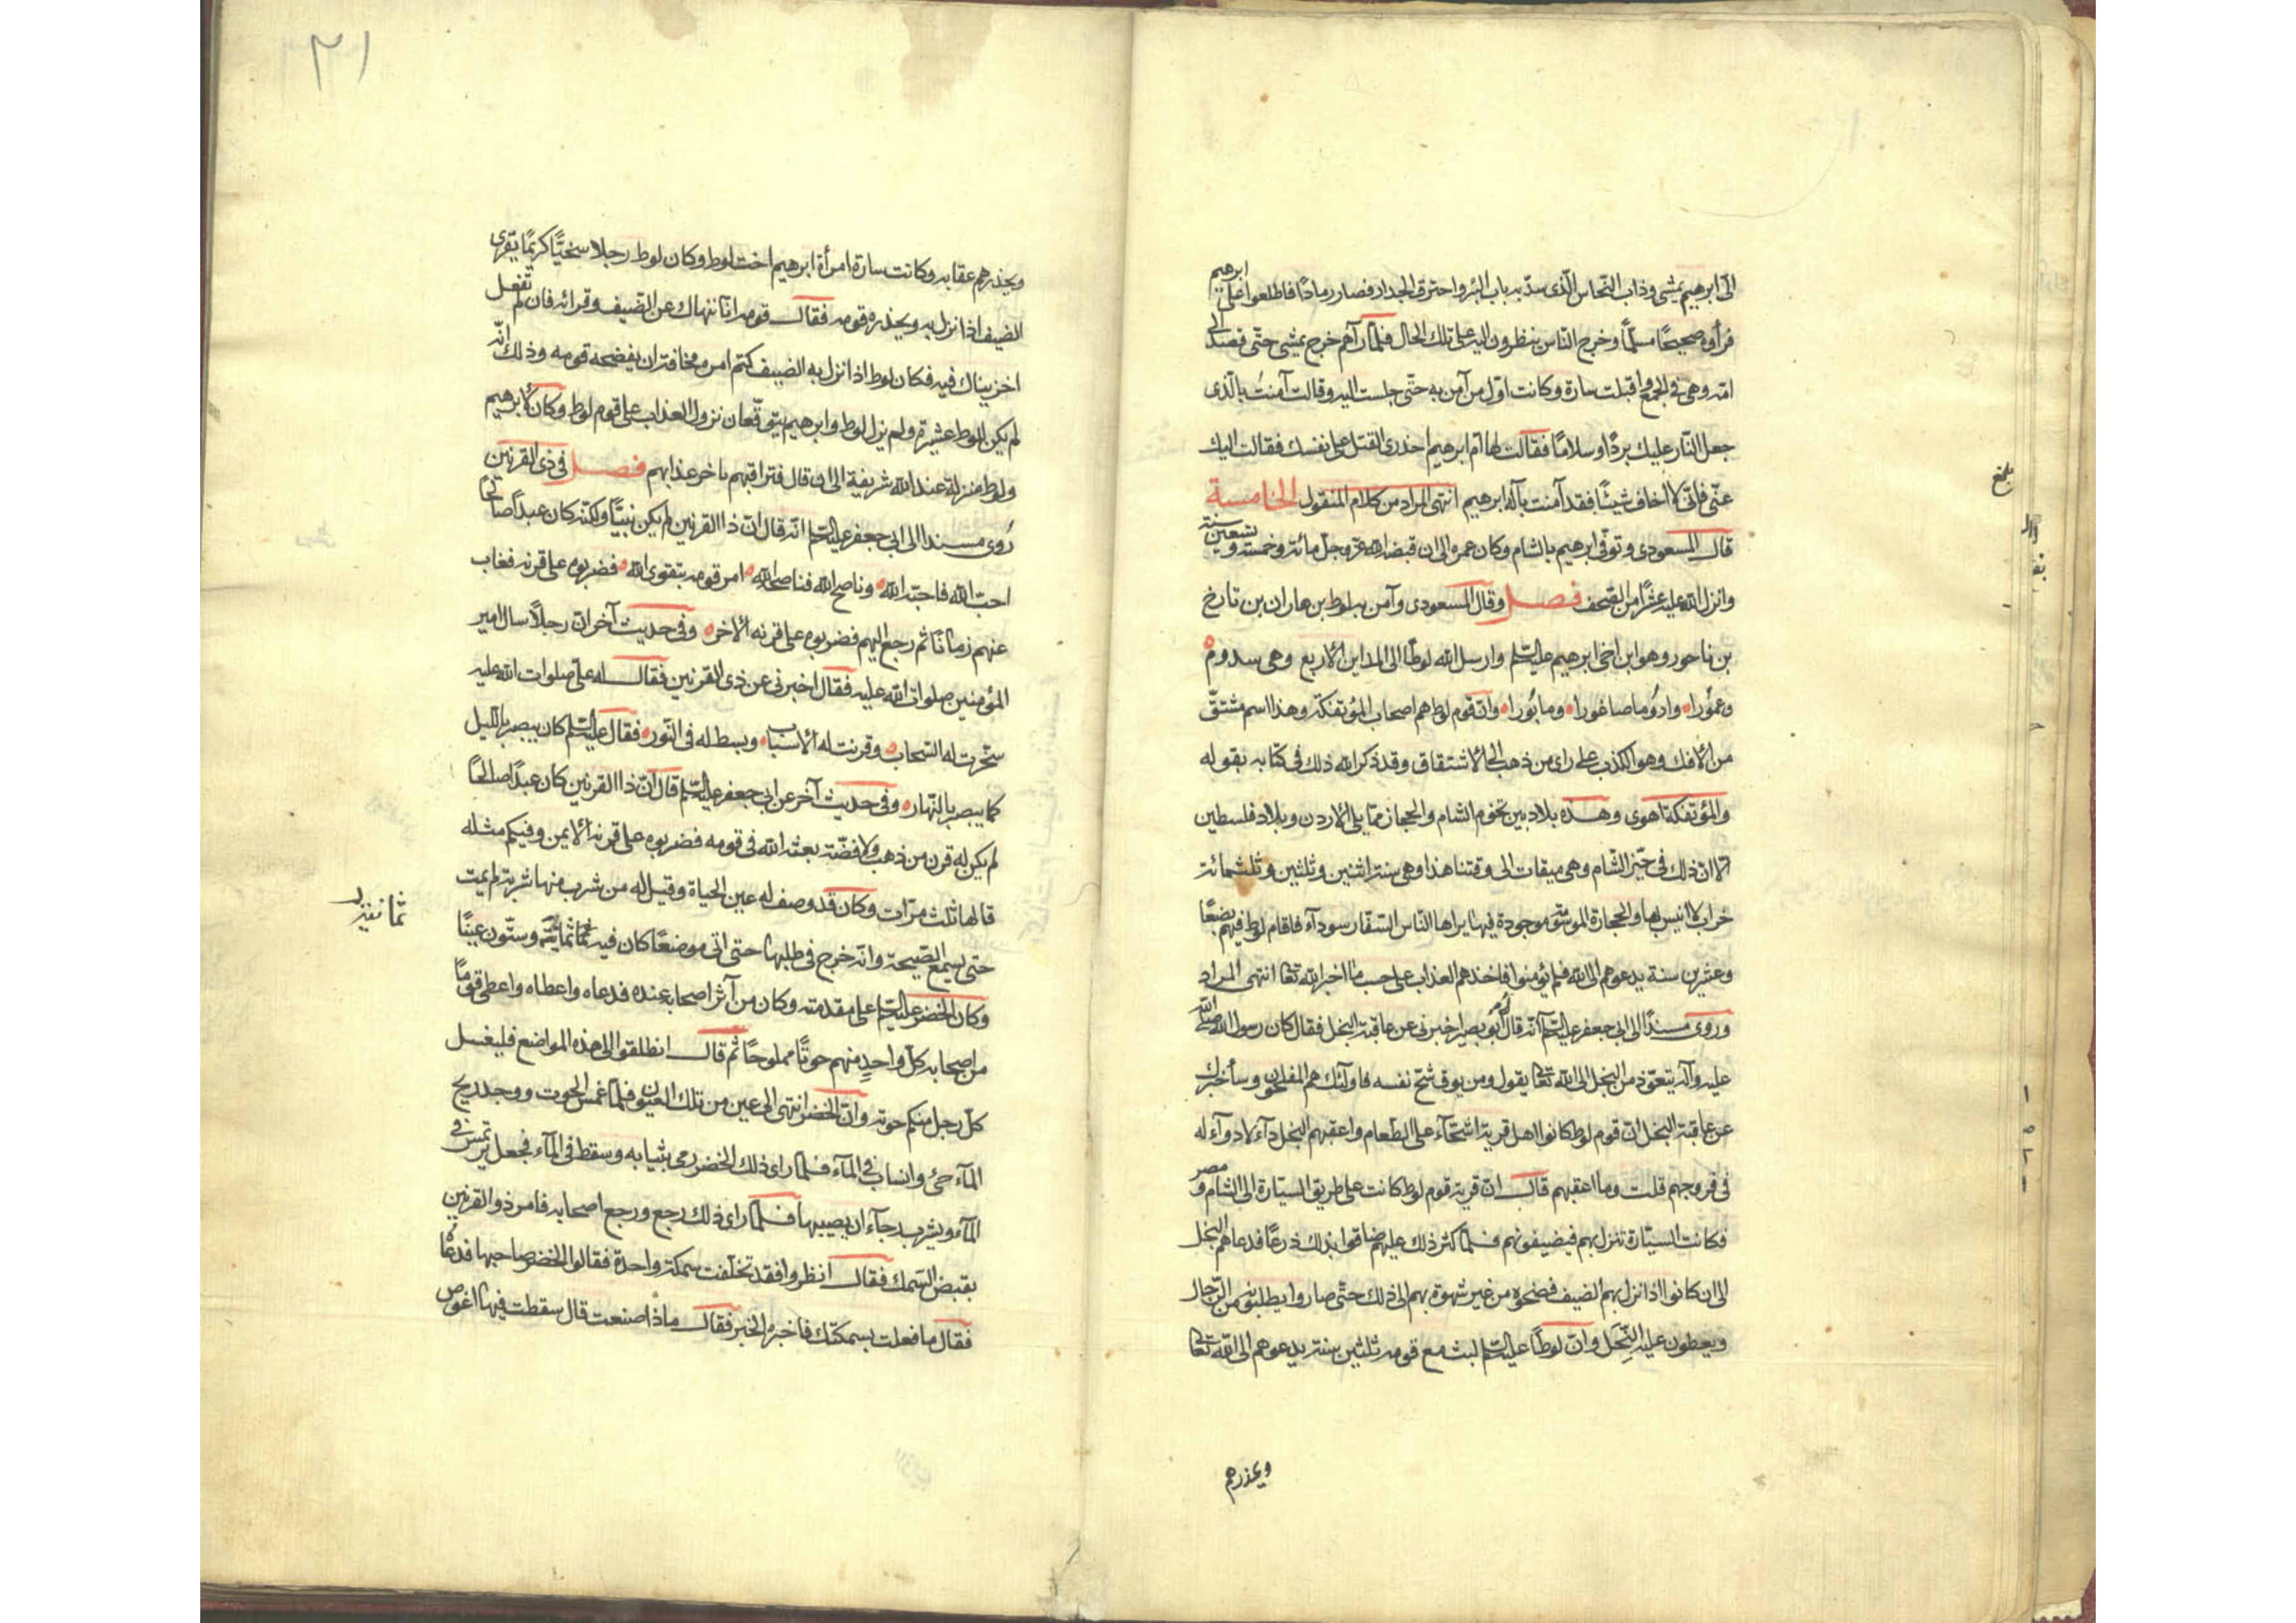 الى ابرهيم يمشى وذاب النحاس الّذى سدّ به باب البئر واحترق الجدار فصار رمادًا فاطلعوا على ابرهيم
فرأوه صحيحًا مسلّمًا وخرج النّاس ينظرون اليه على تلك الحال فلمّا رآهم خرج يمشى حتّى قصد الى
امّه وهى فى الجمع واقبلت سارة وكانت اوّل من آمن به حتّى جلست اليه وقالت آمنتُ بالّذى
جعل النّار عليك بردًا وسلامًا فقالت لها امّ ابرهيم احذرى القتل على نفسك فقالت اليك
عنّى فانّى لا اخاف شيئًا فقد آمنت بآله ابرهيم انتهى المراد من كلام المنقول الخامسة
قال المسعودى وتوفّى ابرهيم بالشام وكان عمره الى ان قبضه الله عزّ وجلّ مائة وخمسة وتسعين سنة
وانزل الله عليه عشرًا من الصّحف فصل وقال المسعودى وآمن به لوط بن هاران بن تارخ
بن ناحور وهو ابن اخى ابرهيم عليه السّلم وارسل الله لوطًا الى المداين الاربع وهى سدوم
وعمورا وادوما صاغورا ومابورا وانّ قوم لوط هم اصحاب المؤتفكة وهذا اسم مشتقّ
من الافك وهو الكذب على راى من ذهب الى الاشتقاق وقد ذكر الله ذلك فى كتابه بقوله
والمؤتفكة اهوى وهذه بلاد بين تخوم الشام والحجاز ممّا يلى الاردن وبلاد فلسطين
الّا انّ ذلك فى حيّز الشّام وهى مبقاة الى وقتنا هذا وهى سنة اثنين وثلثين وثلثمائة
خراب لا انيس بها والحجارة المسوّمة موجودة فيها يراها النّاس السّفّار سودآء فاقام لوط فيهم بضعًا
وعشرين سنة يدعوهم الى الله فلم يؤمنوا فاخذهم العذاب على حسب ما اخبر الله تعا انتهى المراد
وروى مسندًا الى ابى جعفر عليه السّلم انّه قال له أبو بصير اخبرنى عن عاقبة البخل فقال كان رسول الله صلّى الله
عليه وآله يتعوّذ من البخل الى الله تعا يقول ومن يوق شحّ نفسه فاولئك هم المفلحون وسأخبرك
عن عاقبة البخل انّ قوم لوط كانوا اهل قرية اشحّآء على الطّعام واعقبهم البخل دآء لا دوآء له
فى فروجهم قلت وما اعقبهم قال انّ قرية قوم لوط كانت على طريق السيّارة الى الشام ومصر
فكانت السيّارة تنزل بهم فيضيفونهم فلمّا كثر ذلك عليهم ضاقوا بذلك ذرعًا فدعاهم البخل
الى ان كانوا اذا نزل بهم الضيف فضحوه من غير شهوة بهم الى ذلك حتّى صاروا يطلبونه من الرّجال
ويعطون عليه النِّحَل وانّ لوطًا عليه السّلم لبث مع قومه ثلثين سنة يدعوهم الى الله تعا
ويحذرهم
بلغ
٢١
ويحذرهم عقابه وكانت سارة امرأة ابرهيم اخت لوط وكان لوط رجلا سخيًّا كريمًا يقرى
الضيف اذا نزل به ويحذره قومه فقال قومه انّا ننهاك عن الضّيف وقرائه فان لم تفعل
اخزيناك فيه فكان لوط اذا نزل به الضيف كتم امره مخافة ان يفضحه قومه وذلك انّه
لم يكن للوط عشيرة ولم يزل لوط وابرهيم يتوقّعان نزول العذاب على قوم لوط وكان لابرهيم
ولوط منزلة عند الله شريفة الى ان قال فتراقبهم باخر عذابهم فصل فى ذى القرنين
رُوى مسندا الى ابى جعفر عليه السّلم انّه قال انّ ذا القرنين لم يكن نبيًّا ولكنّه كان عبدًا صالحًا
احبّ الله فاحبّه الله وناصح الله فناصحه الله امر قومه بتقوى الله فضربوه على قرنه فغاب
عنهم زمانًا ثم رجع اليهم فضربوه على قرنه الاخر وفى حديث آخر انّ رجلًا سال امير
المؤمنين صلوات الله عليه فقال اخبرنى عن ذى القرنين فقال له علىّ صلوات الله عليه
سخّرت له السّحاب وقرنت له الاسباب وبسط له فى النّور فقال عليه السّلم كان يبصر باللّيل
كما يبصر بالنّهار وفى حديث آخر عن ابى جعفر عليه السّلم قال انّ ذا القرنين كان عبدًا صالحًا
لم يكن له قرن من ذهب ولا فضّة بعثه الله فى قومه فضربوه على قرنه الايمن وفيكم مثله
قالها ثلث مرّات وكان قد وصف له عين الحياة وقيل له من شرب منها شربة لم يمت
حتى يسمع الصّيحة وانّه خرج فى طلبها حتى اتى موضعًا كان فيه ثلثمائة وستّون عينًا
وكان الخضر عليه السّلم على مقدمته وكان من آثر اصحابه عنده فدعاه واعطاه واعطى قومًا
من اصحابه كلّ واحدٍ منهم حوتًا مملوحًا ثم قال انطلقوا الى هذه المواضع فليغسل
كلّ رجل منكم حوته وانّ الخضر انتهى الى عين من تلك العيون فلمّا غمس الحوت ووجد ريح
المآء حىّ وانساب فى المآء فلمّا راى ذلك الخضر رمى بثيابه وسقط فى المآء فجعل يرتمس فى
المآء ويشرب رجآء ان يصيبها فلمّا راى ذلك رجع ورجع اصحابه فامر ذو القرنين
بقبض السّمك فقال انظروا فقد تخلّفت سمكة واحدة فقالوا الخضر صاحبها فدعاه
فقال ما فعلت بسمكتك فاخبره الخبر فقال ماذا صنعت قال سقطت فيها اغوص